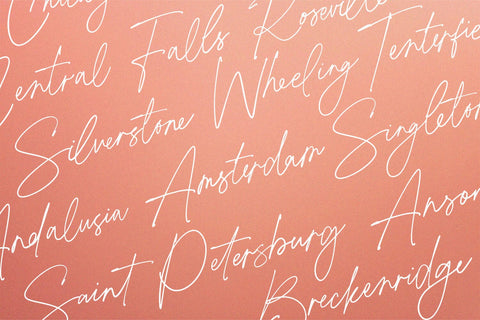 Roseville
Central Falls Tenterfie
Silverstone Wheeling
Amsterdam Singleton
Andalusia Anson
Saint Petersburg
Breckenridge